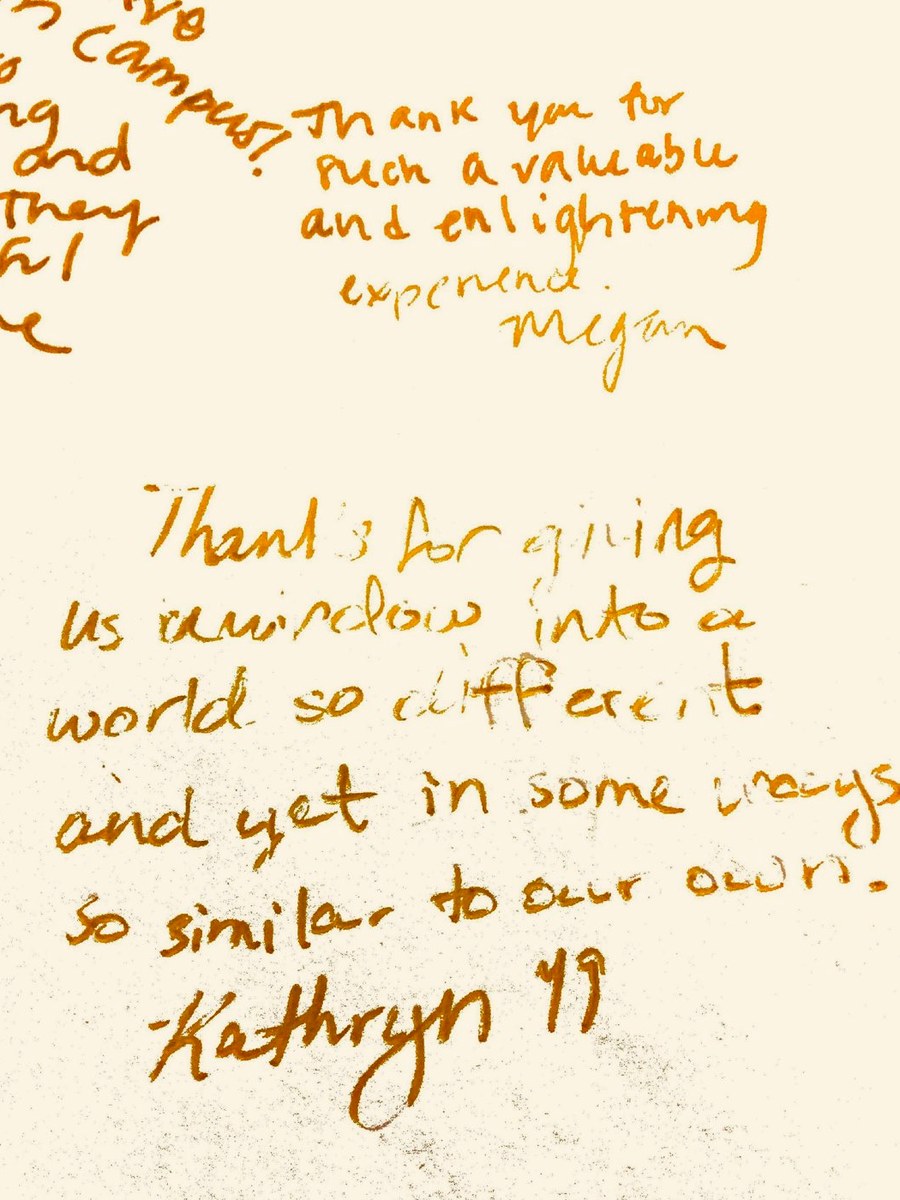 campus!
and
they
Thank you for
such a valueable
and enlightening
experience.
Megan
Thanks for giving
us a window into a
world so different
and yet in some ways
so similar to our own.
-Kathryn